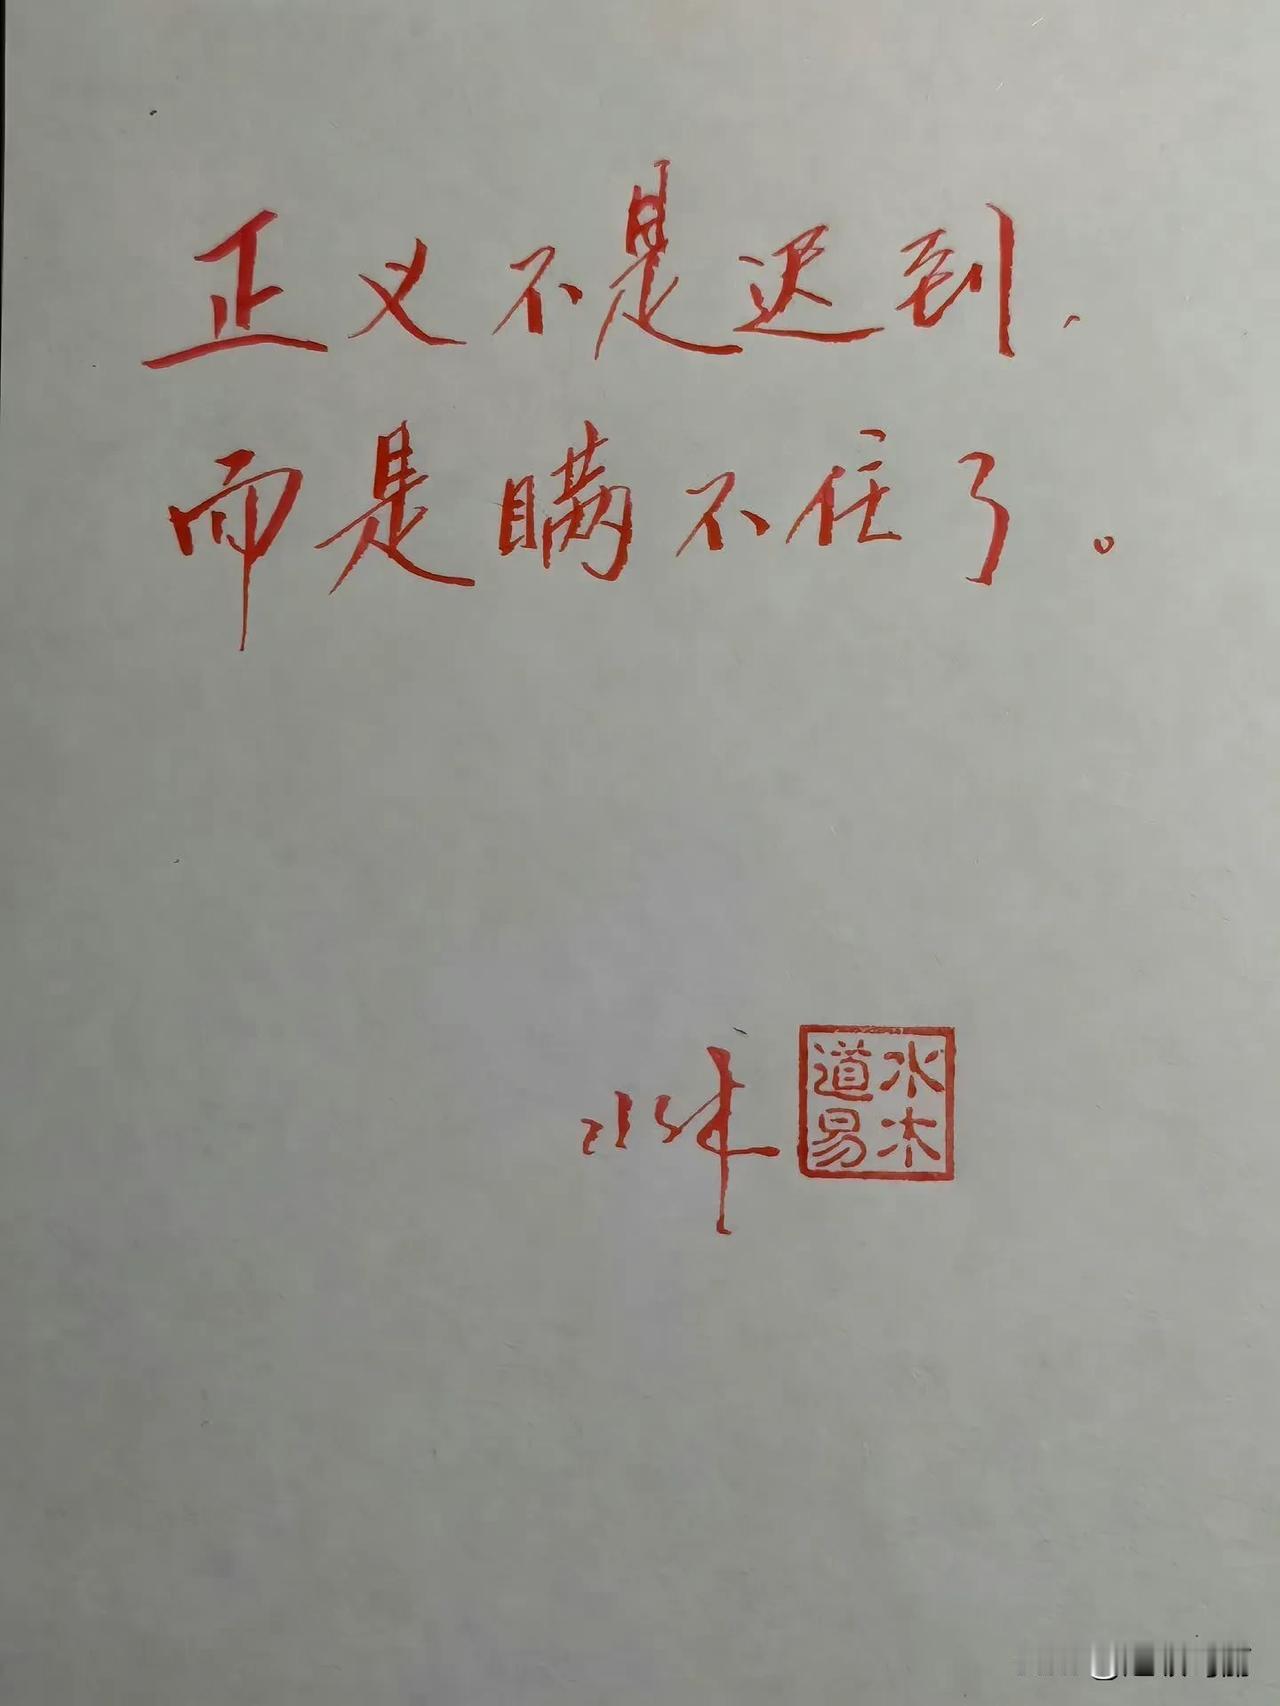 正义不是迟到，
而是瞒不住了。
水木
水木
道易